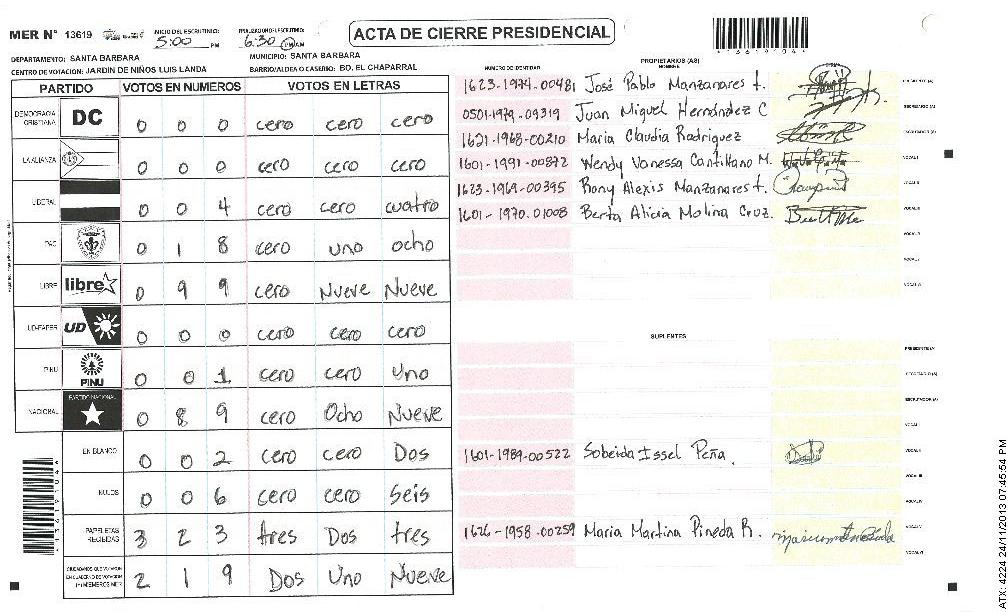 MER N° 13619
INICIO DEL ESCRUTINIO: 5:00 PM
FINALIZACION DE ESCRUTINIO: 6:30 PM AM
ACTA DE CIERRE PRESIDENCIAL
DEPARTAMENTO: SANTA BARBARA MUNICIPIO: SANTA BARBARA
CENTRO DE VOTACION: JARDIN DE NIÑOS LUIS LANDA BARRIO/ALDEA O CASERIO: BO. EL CHAPARRAL
PARTIDO VOTOS EN NUMEROS VOTOS EN LETRAS
DEMOCRACIA CRISTIANA DC 0 0 0 cero cero cero
LA ALIANZA 0 0 0 cero cero cero
LIBERAL 0 0 4 cero cero cuatro
PAC 0 1 8 cero uno ocho
LIBRE libre 0 9 9 cero Nueve Nueve
UD-FAPER UD 0 0 0 cero cero cero
PINU PINU 0 0 1 cero cero Uno
NACIONAL PARTIDO NACIONAL 0 8 9 cero Ocho Nueve
EN BLANCO 0 0 2 cero cero Dos
NULOS 0 0 6 cero cero Seis
PAPELETAS RECIBIDAS 3 2 3 tres Dos tres
CIUDADANOS QUE VOTARON EN CUADERNO DE VOTACION (+) MIEMBROS MER 2 1 9 Dos Uno Nueve
PROPIETARIOS (AS)
NUMERO DE IDENTIDAD NOMBRE FIRMA
1623-1974-00481 José Pablo Manzanares t. PRESIDENTE (A)
0501-1979-09319 Juan Miguel Hernández C SECRETARIO (A)
1601-1968-00210 Maria Claudia Rodriguez ESCRUTADOR (A)
1601-1991-00872 Wendy Vanessa Cantillano M. VOCAL I
1623-1969-00395 Rony Alexis Manzanares t. VOCAL II
1601-1970-01008 Berta Alicia Molina Cruz. VOCAL III
SUPLENTES
PRESIDENTE (A)
SECRETARIO (A)
ESCRUTADOR (A)
VOCAL I
1601-1989-00522 Sobeida Issel Peña. VOCAL II
VOCAL III
VOCAL IV
1626-1958-00259 Maria Martina Pineda R. VOCAL V
VOCAL VI
ATX: 4224 24/11/2013 07:45:54 PM